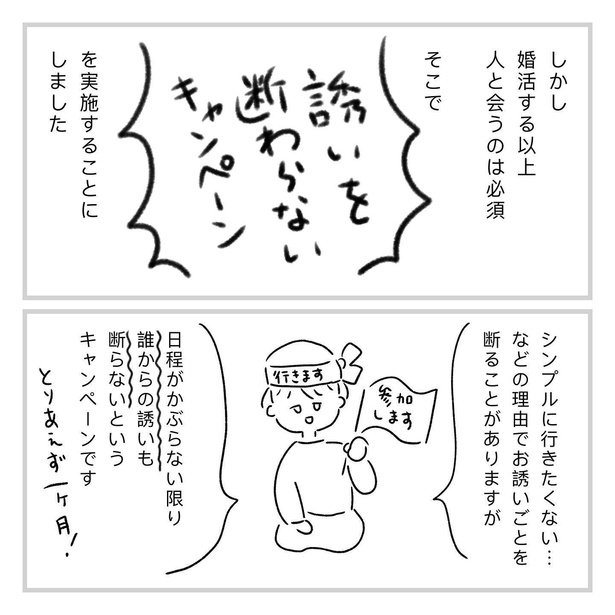 しかし
婚活する以上
人と会うのは必須
そこで
誘いを
断わらない
キャンペーン
を実施することに
しました
シンプルに行きたくない…
などの理由でお誘いごとを
断ることがありますが
行きます
参加
します
日程がかぶらない限り
誰からの誘いも
断らないという
キャンペーンです
とりあえず一ヶ月!